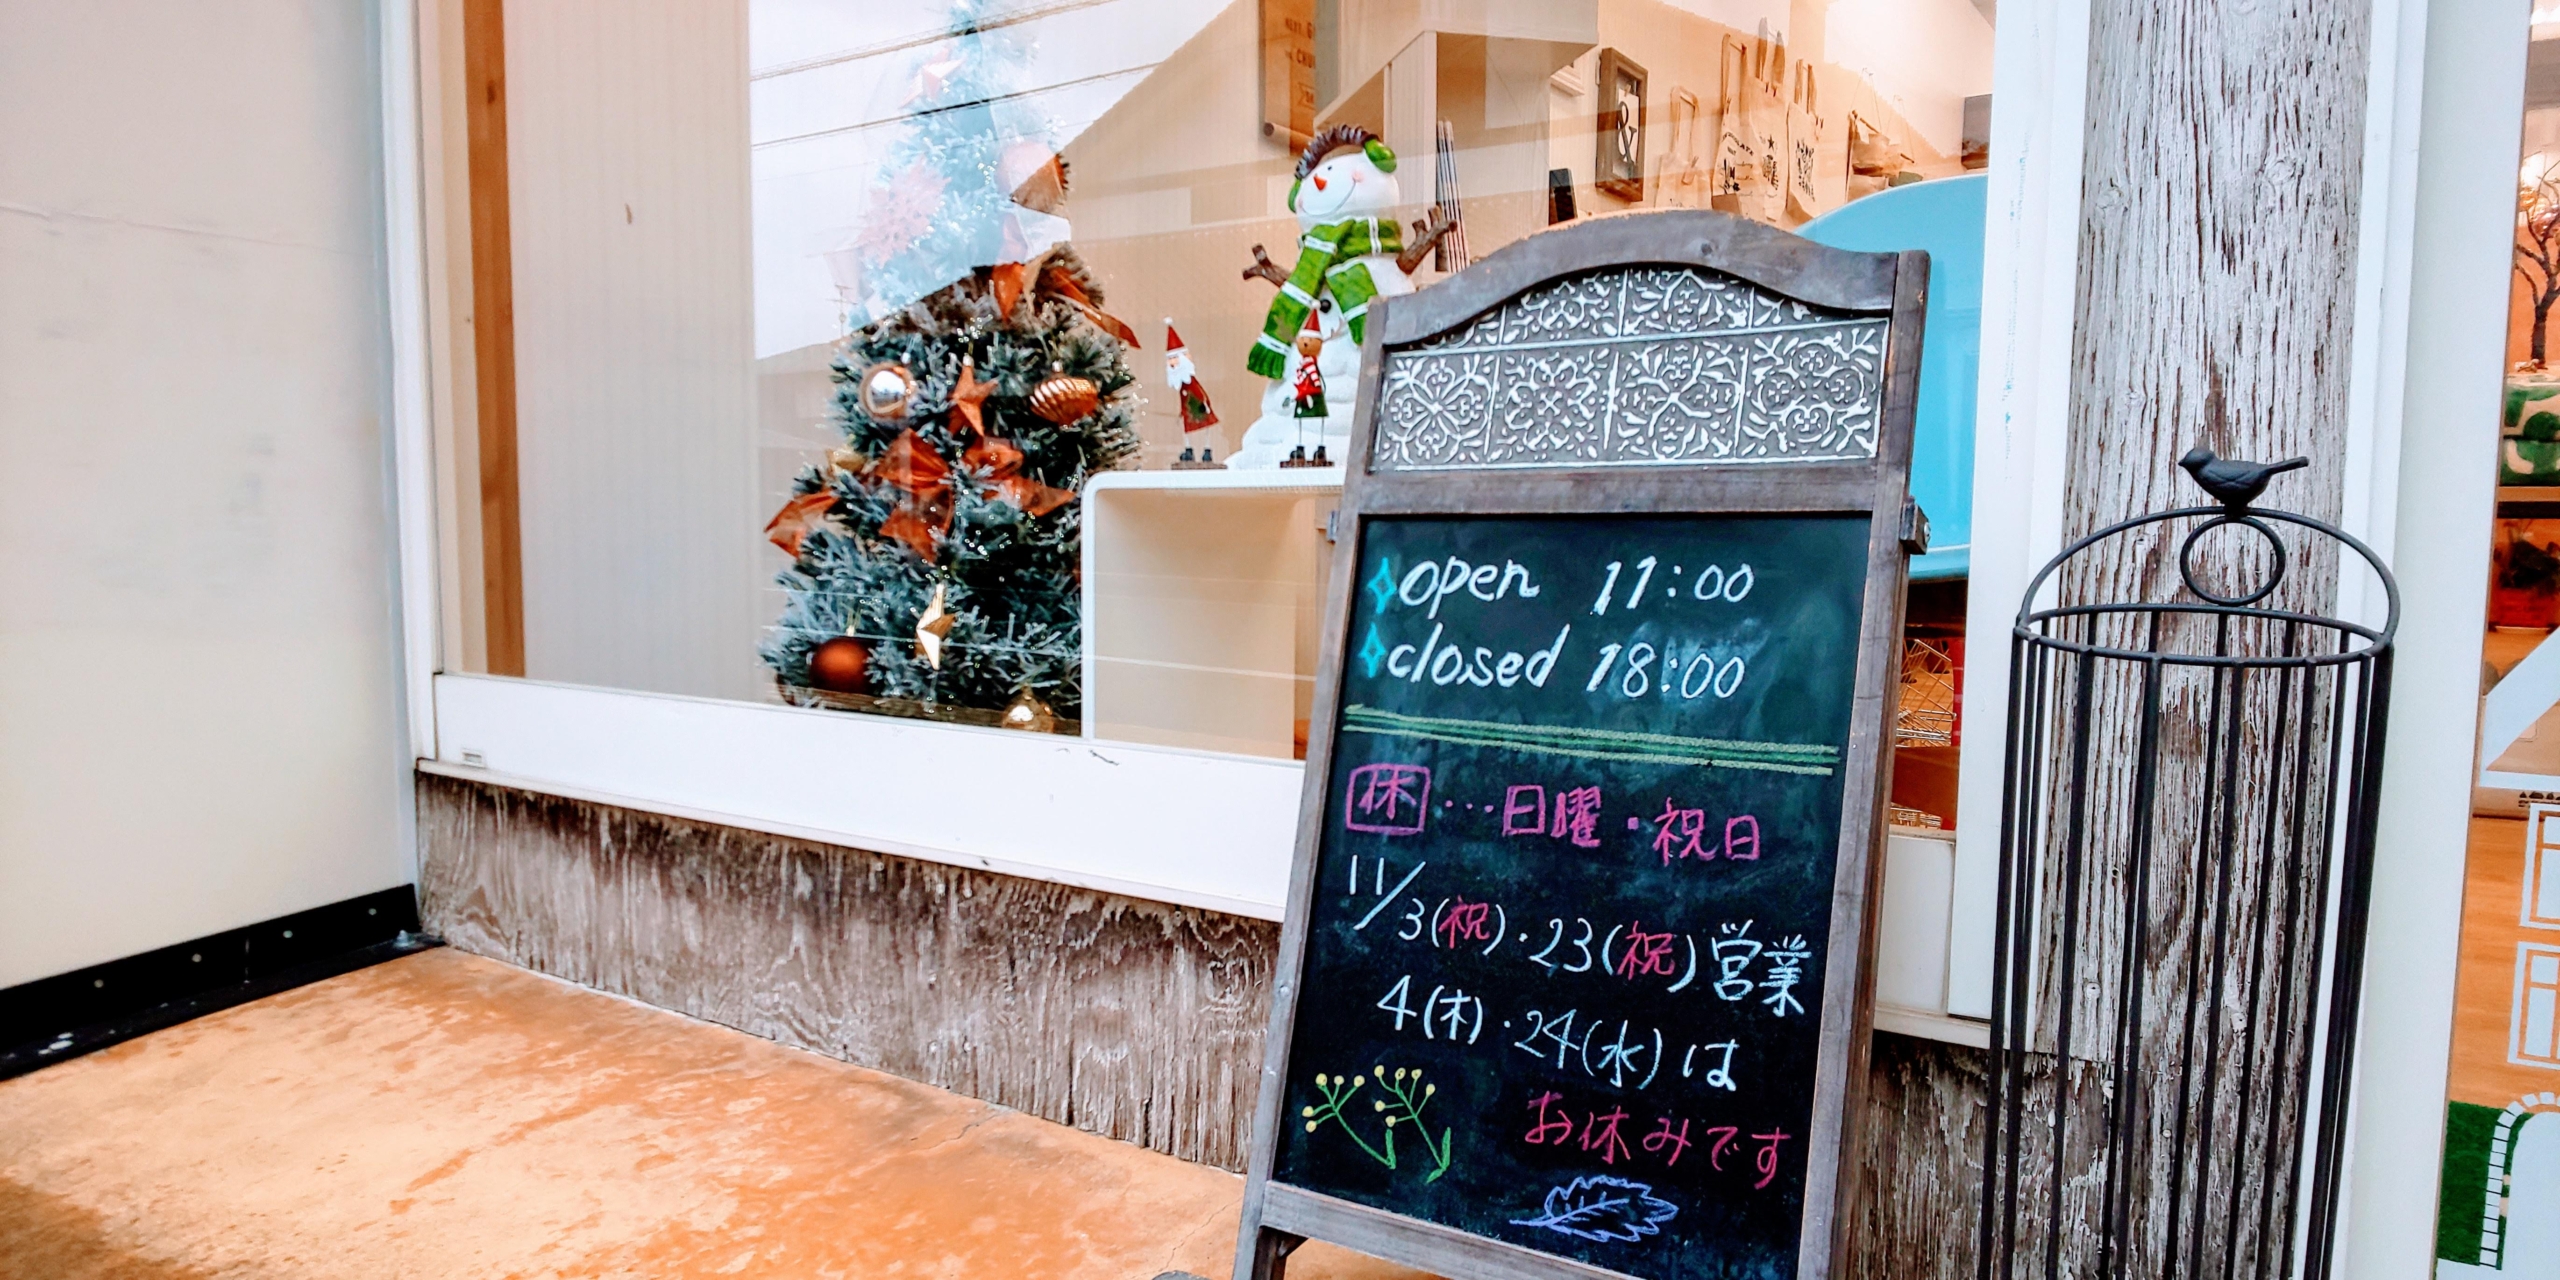 &
open 11:00
closed 18:00
休…日曜・祝日
11/3(祝)・23(祝)営業
4(木)・24(水)は
お休みです